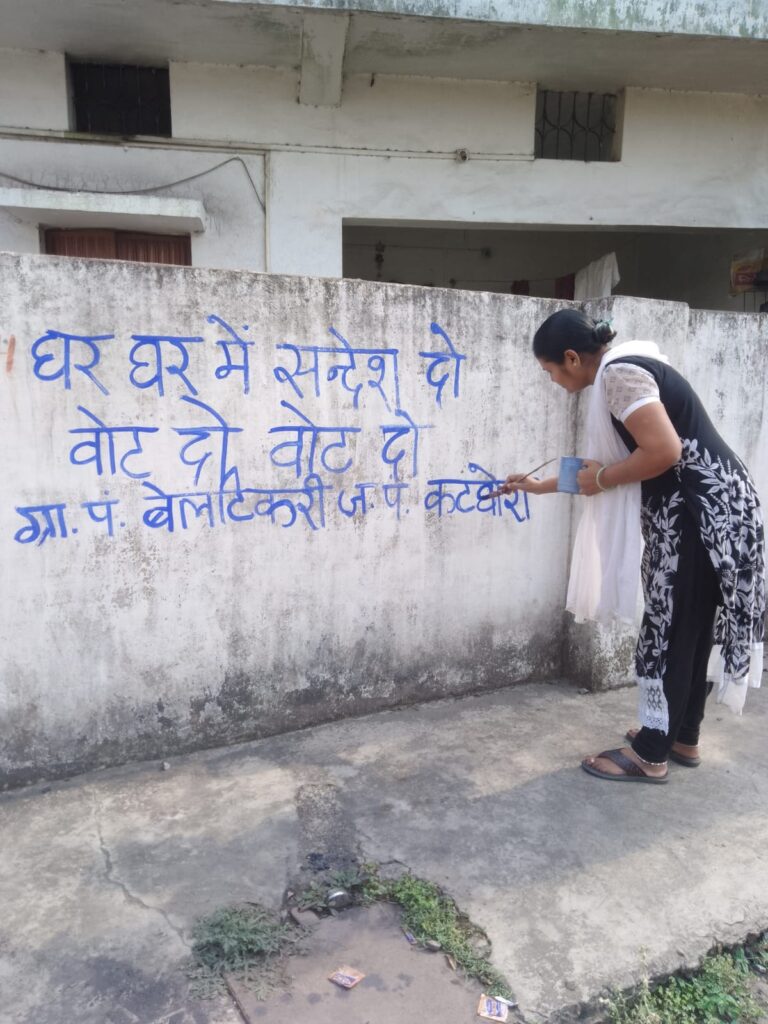 घर घर में सन्देश दो
वोट दो, वोट दो
ग्रा. पं. बेलाटिकरी ज. पं. कटघोरा